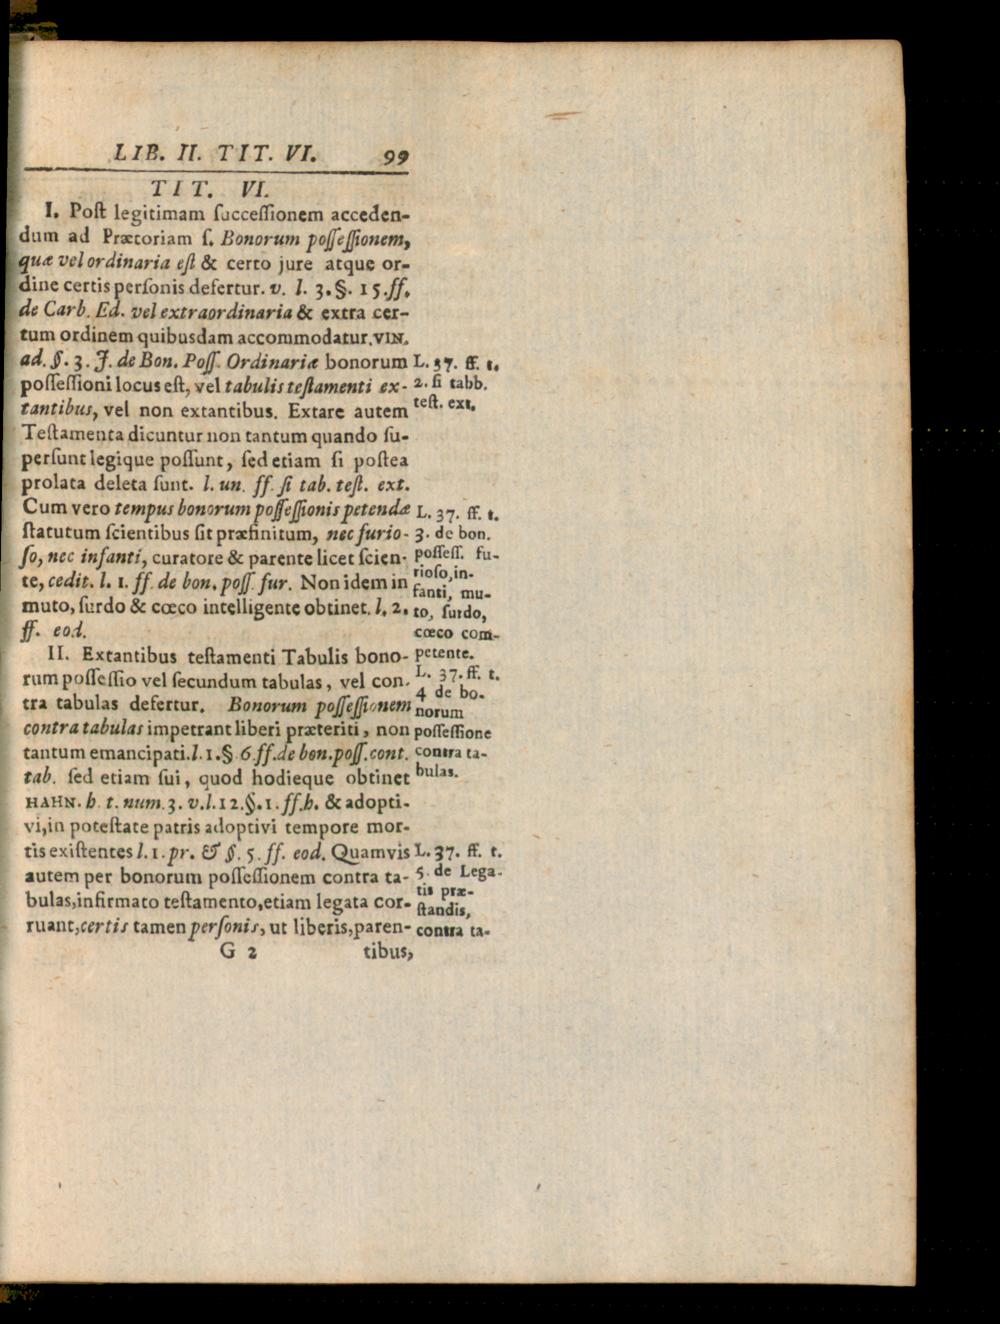 LIB. II. TIT. VI. 99
TIT. VI.
I. Poſt legitimam ſucceſſionem acceden-
dum ad Prætoriam ſ. Bonorum poſſeſſionem,
quæ vel ordinaria eſt & certo jure atque or-
dine certis perſonis defertur. v. l. 3. §. 15. ff.
de Carb. Ed. vel extraordinaria & extra cer-
tum ordinem quibusdam accommodatur. VIN.
ad. §. 3. J. de Bon. Poſſ. Ordinariæ bonorum
poſſeſſioni locus eſt, vel tabulis teſtamenti ex-
tantibus, vel non extantibus. Extare autem
Teſtamenta dicuntur non tantum quando ſu-
perſunt legique poſſunt, ſed etiam ſi poſtea
prolata deleta ſunt. l. un. ff. ſi tab. teſt. ext.
Cum vero tempus bonorum poſſeſſionis petendæ
ſtatutum ſcientibus ſit præfinitum, nec furio-
ſo, nec infanti, curatore & parente licet ſcien-
te, cedit. l. 1. ff. de bon. poſſ. fur. Non idem in
muto, ſurdo & cœco intelligente obtinet. l. 2.
ff. eod.
II. Extantibus teſtamenti Tabulis bono-
rum poſſeſſio vel ſecundum tabulas, vel con-
tra tabulas defertur. Bonorum poſſeſſionem
contra tabulas impetrant liberi præteriti, non
tantum emancipati. l. 1. § 6. ff. de bon. poſſ. cont.
tab. ſed etiam ſui, quod hodieque obtinet
HAHN. h. t. num. 3. v. l. 12. §. 1. ff. h. & adopti-
vi, in poteſtate patris adoptivi tempore mor-
tis exiſtentes l. 1. pr. & §. 5. ff. eod. Quamvis
autem per bonorum poſſeſſionem contra ta-
bulas, infirmato teſtamento, etiam legata cor-
ruant, certis tamen perſonis, ut liberis, paren-
G 2 tibus,
L. 37. ff. t.
2. ſi tabb.
teſt. ext.
L. 37. ff. t.
3. de bon.
poſſeſſ. fu-
rioſo, in-
fanti, mu-
to, ſurdo,
cœco com-
petente.
L. 37. ff. t.
4 de bo-
norum
poſſeſſione
contra ta-
bulas.
L. 37. ff. t.
5. de Lega-
tis præ-
ſtandis,
contra ta-